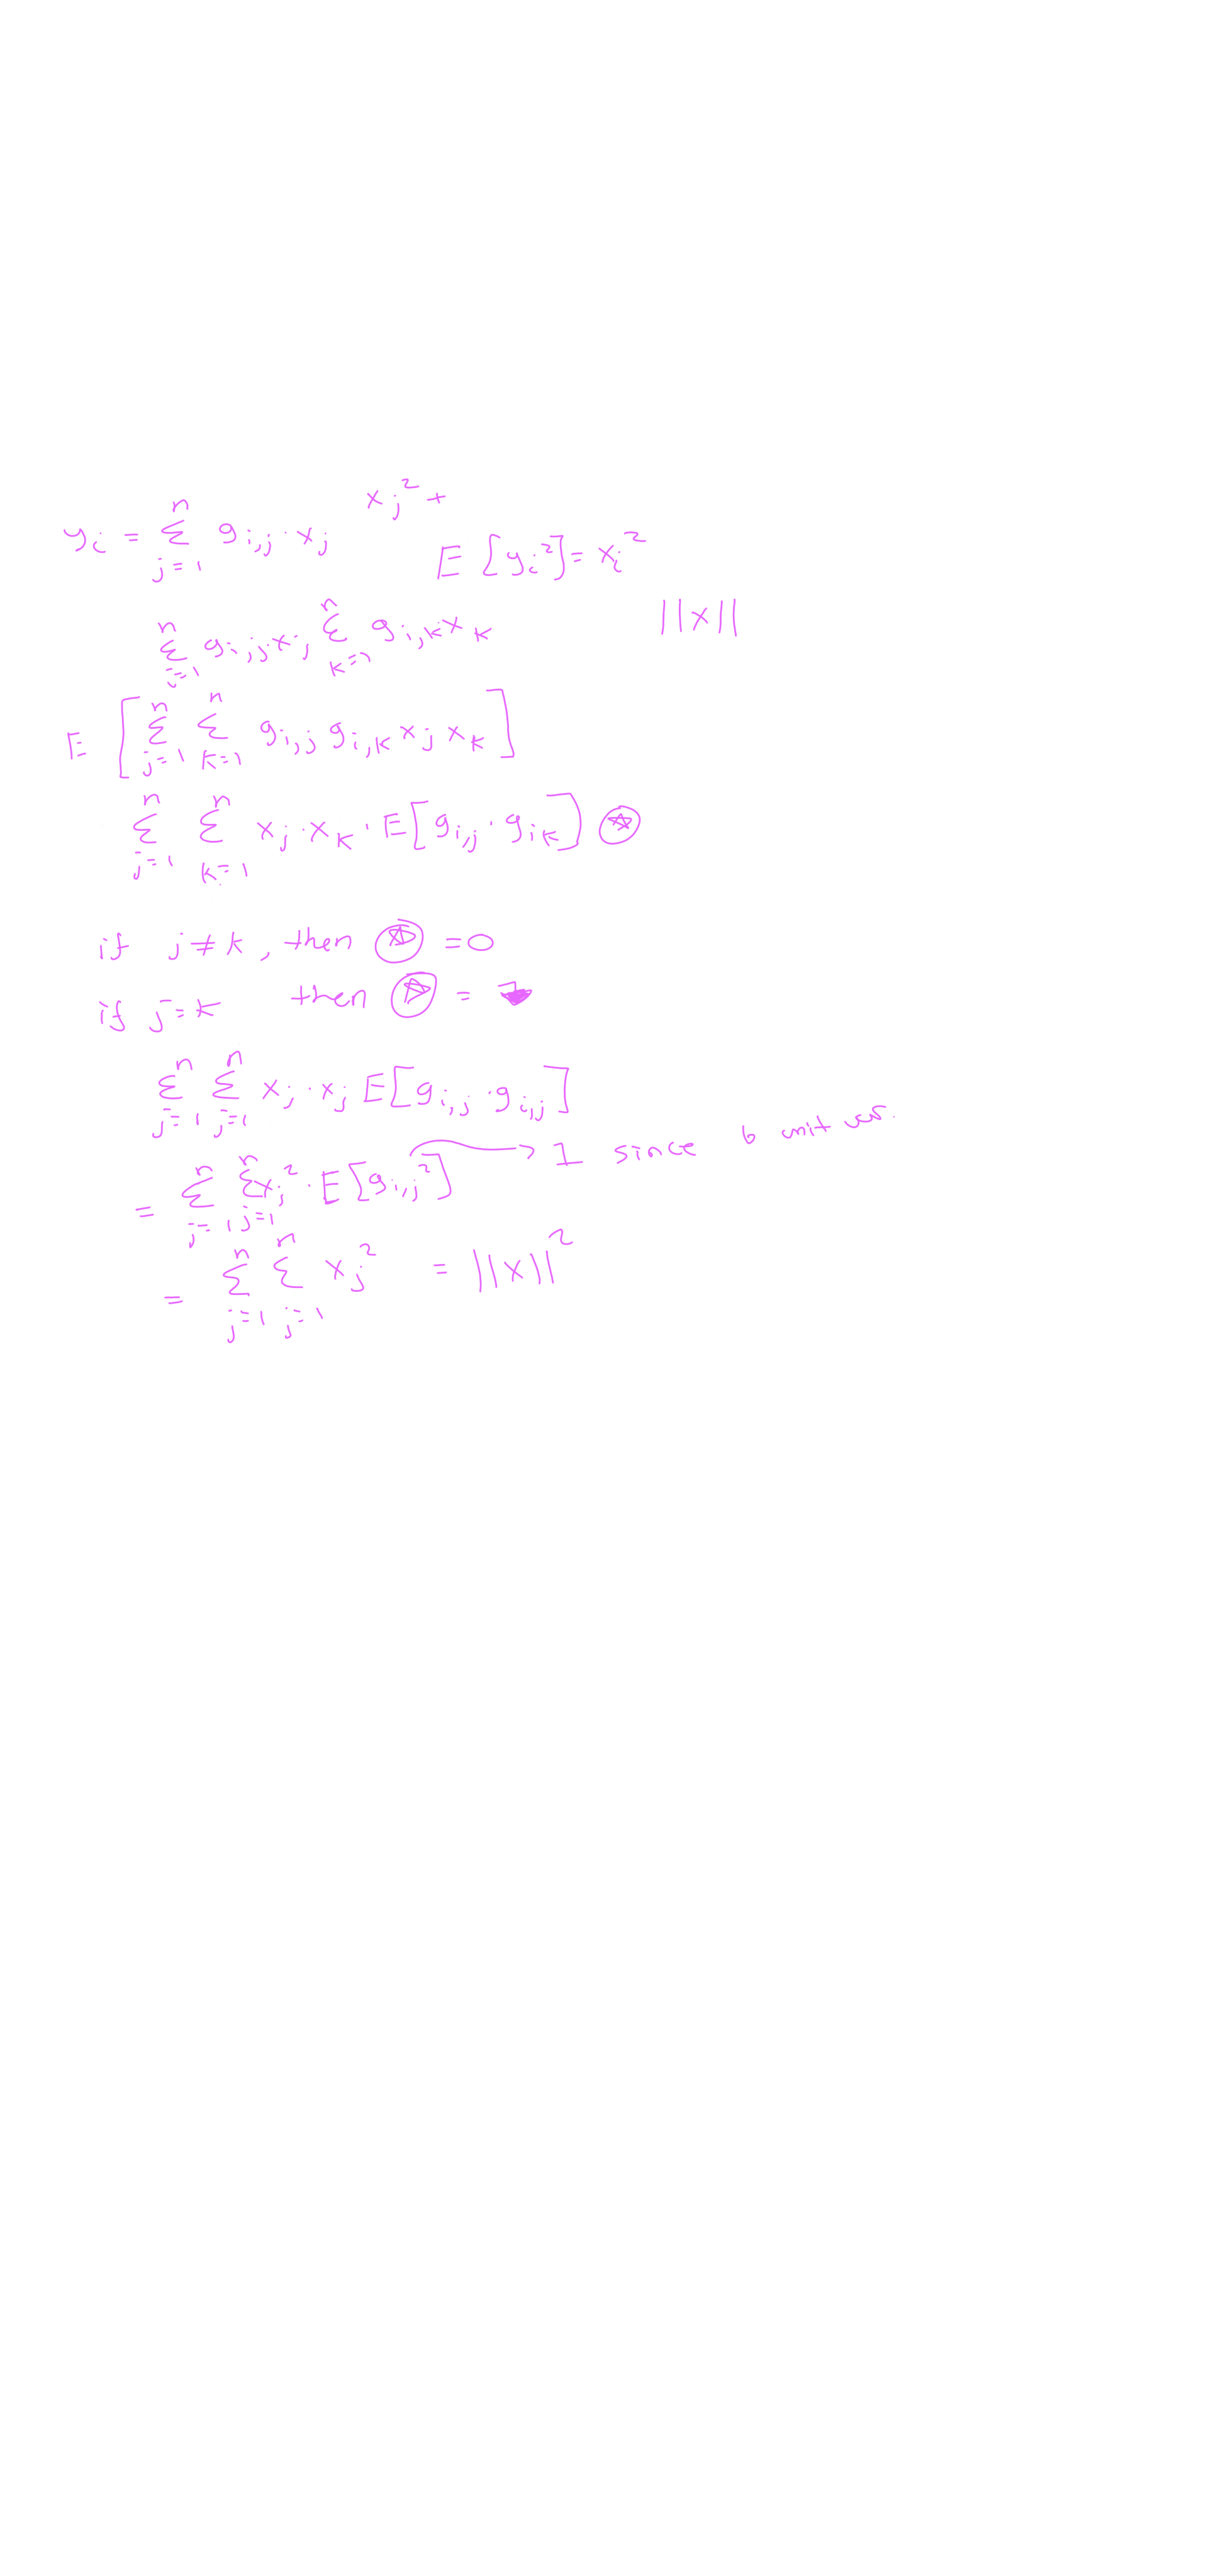 y_i = Σ_{j=1}^{n} g_{i,j} · x_j    x_j² +
E[y_i²] = x_i²
Σ_{j=1}^{n} g_{i,j} x_j Σ_{k=1}^{n} g_{i,k} x_k    ||x||
E [ Σ_{j=1}^{n} Σ_{k=1}^{n} g_{i,j} g_{i,k} x_j x_k ]
Σ_{j=1}^{n} Σ_{k=1}^{n} x_j · x_k · E[g_{i,j} · g_{ik}] ⍟
if j ≠ k, then ⍟ = 0
if j = k then ⍟ =
Σ_{j=1}^{n} Σ_{j=1}^{n} x_j · x_j E[g_{i,j} · g_{i,j}]
= Σ_{j=1}^{n} Σ_{j=1}^{n} x_j² · E[g_{i,j}²] → 1 since unit
= Σ_{j=1}^{n} Σ_{j=1}^{n} x_j² = ||x||²